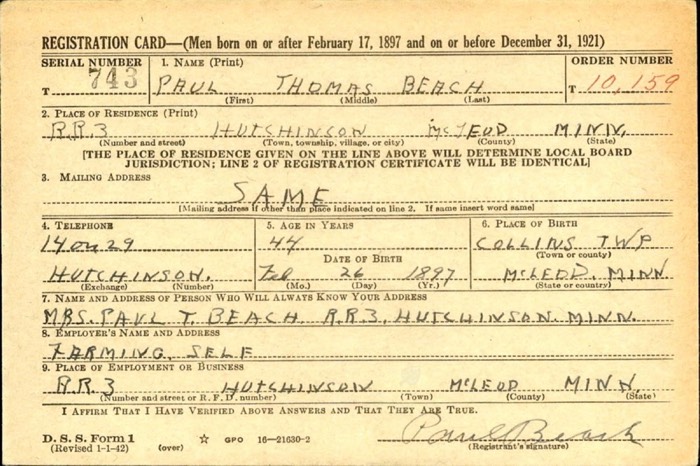 REGISTRATION CARD—(Men born on or after February 17, 1897 and on or before December 31, 1921)
SERIAL NUMBER 1. NAME (Print) ORDER NUMBER
T 743 PAUL THOMAS BEACH T 10,159
(First) (Middle) (Last)
2. PLACE OF RESIDENCE (Print)
R.R.3 HUTCHINSON McLEOD MINN.
(Number and street) (Town, township, village, or city) (County) (State)
[THE PLACE OF RESIDENCE GIVEN ON THE LINE ABOVE WILL DETERMINE LOCAL BOARD
JURISDICTION; LINE 2 OF REGISTRATION CERTIFICATE WILL BE IDENTICAL]
3. MAILING ADDRESS
SAME
[Mailing address if other than place indicated on line 2. If same insert word same]
4. TELEPHONE 5. AGE IN YEARS 6. PLACE OF BIRTH
14 on 29 44 COLLINS TWP
DATE OF BIRTH (Town or county)
HUTCHINSON. Feb 26 1897 McLEOD, MINN
(Exchange) (Number) (Mo.) (Day) (Yr.) (State or country)
7. NAME AND ADDRESS OF PERSON WHO WILL ALWAYS KNOW YOUR ADDRESS
MRS. PAUL T. BEACH R.R.3, HUTCHINSON. MINN.
8. EMPLOYER'S NAME AND ADDRESS
FARMING, SELF
9. PLACE OF EMPLOYMENT OR BUSINESS
R.R.3 HUTCHINSON McLEOD MINN.
(Number and street or R. F. D. number) (Town) (County) (State)
I AFFIRM THAT I HAVE VERIFIED ABOVE ANSWERS AND THAT THEY ARE TRUE.
D. S. S. Form 1 ☆ GPO 16—21630-2 Paul Beach
(Revised 1-1-42) (over) (Registrant's signature)